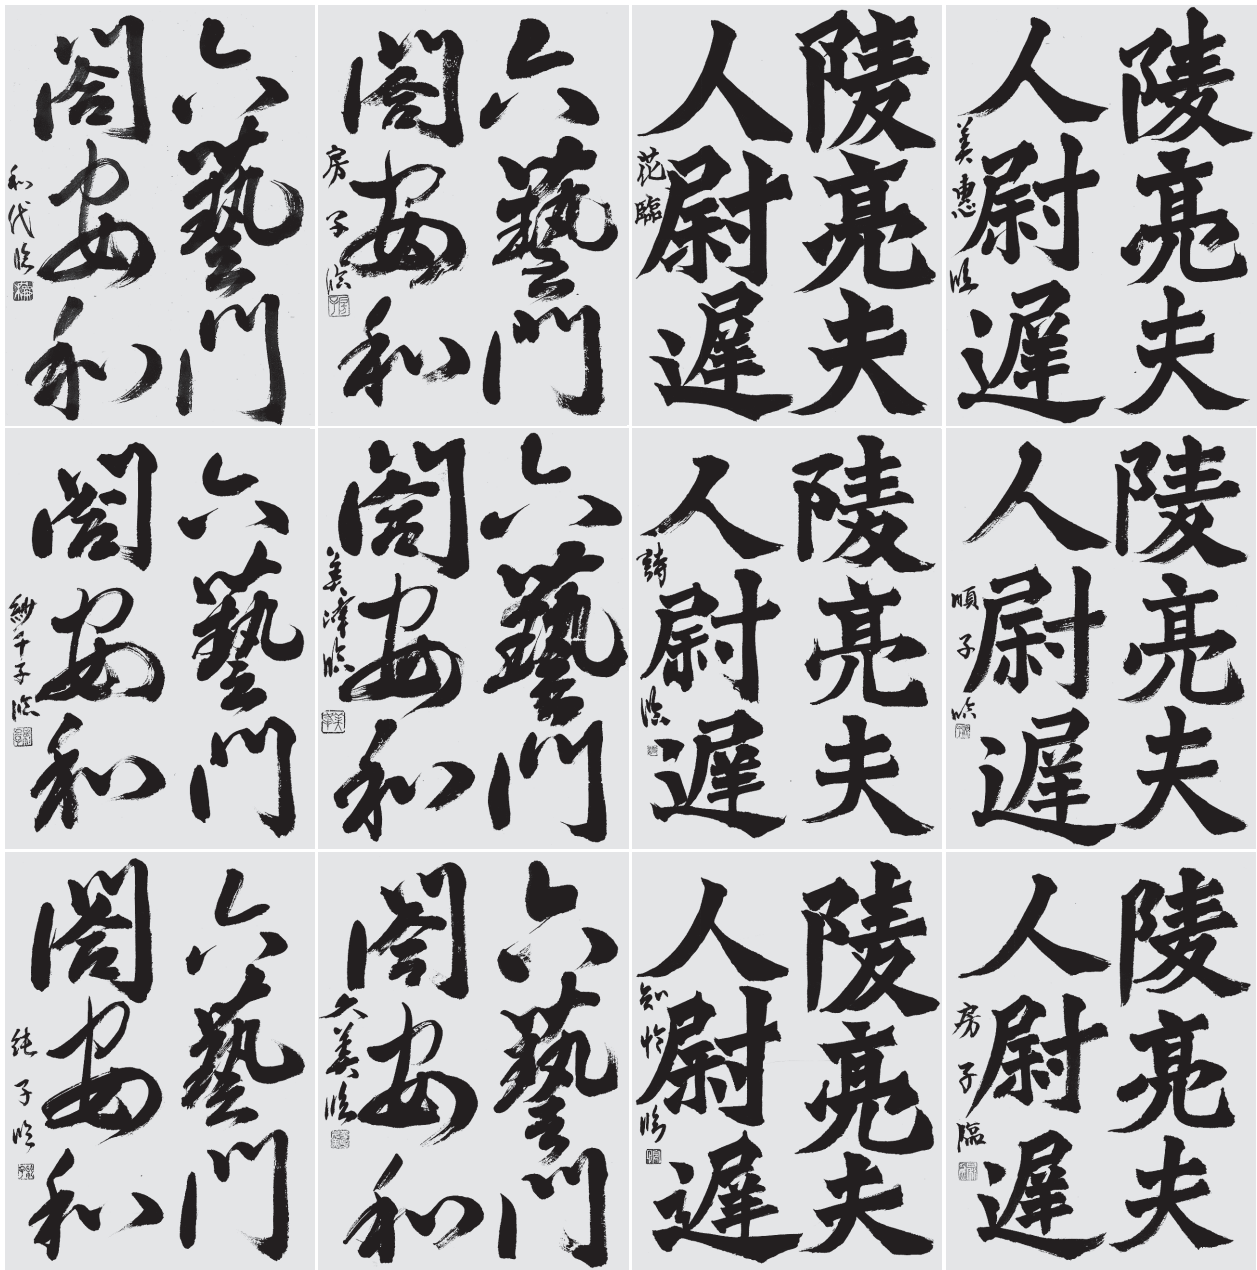 陵亮夫
人尉遅
美惠臨
陵亮夫
人尉遅
花臨
六藝門
閣安和
房子臨
六藝門
閣安和
和代臨
陵亮夫
人尉遅
順子臨
陵亮夫
人尉遅
詩臨
六藝門
閣安和
美津臨
六藝門
閣安和
紗千子臨
陵亮夫
人尉遅
房子臨
陵亮夫
人尉遅
知怜臨
六藝門
閣安和
久美臨
六藝門
閣安和
純子臨